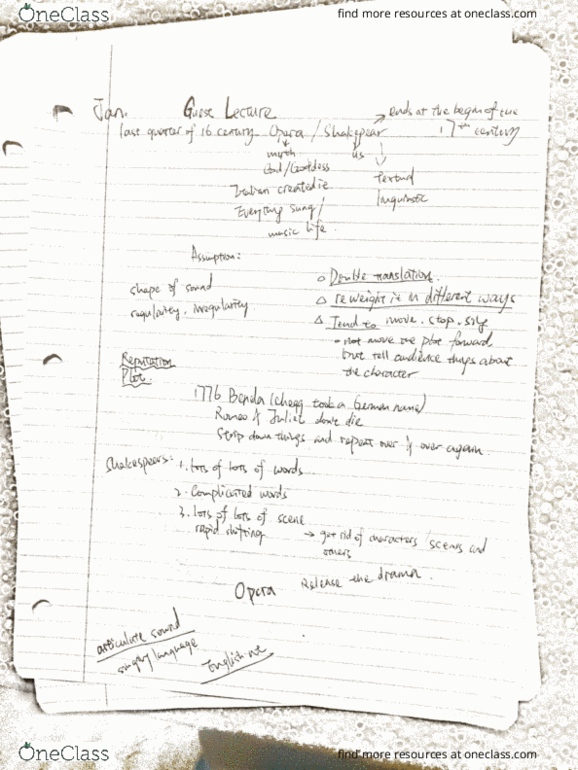 OneClass
find more resources at oneclass.com
Jan. Guest Lecture
ends at the begin of the 17th century
last quarter of 16 century Opera / Shakspear
myth
us
God/Goddess
Textual
linguistic
Italian
Everything sung /
music life.
Assumption:
shape of sound
regularity. irregularity
Double translation.
reweight it in different ways
Tend to move. stop. sing
not move the plot forward,
but tell audience things about
the character
Reputation
Plot.
1776 Benda (chegg took a German name)
Romeo & Juliet don't die
Strip down things and repeat over & over again.
Shakespears: 1. lots of lots of words
2. Complicated words
3. lots of lots of scene
rapid shifting → get rid of characters / scenes and
others
Opera Release the drama.
articulate sound
singing language
English not
OneClass
find more resources at oneclass.com